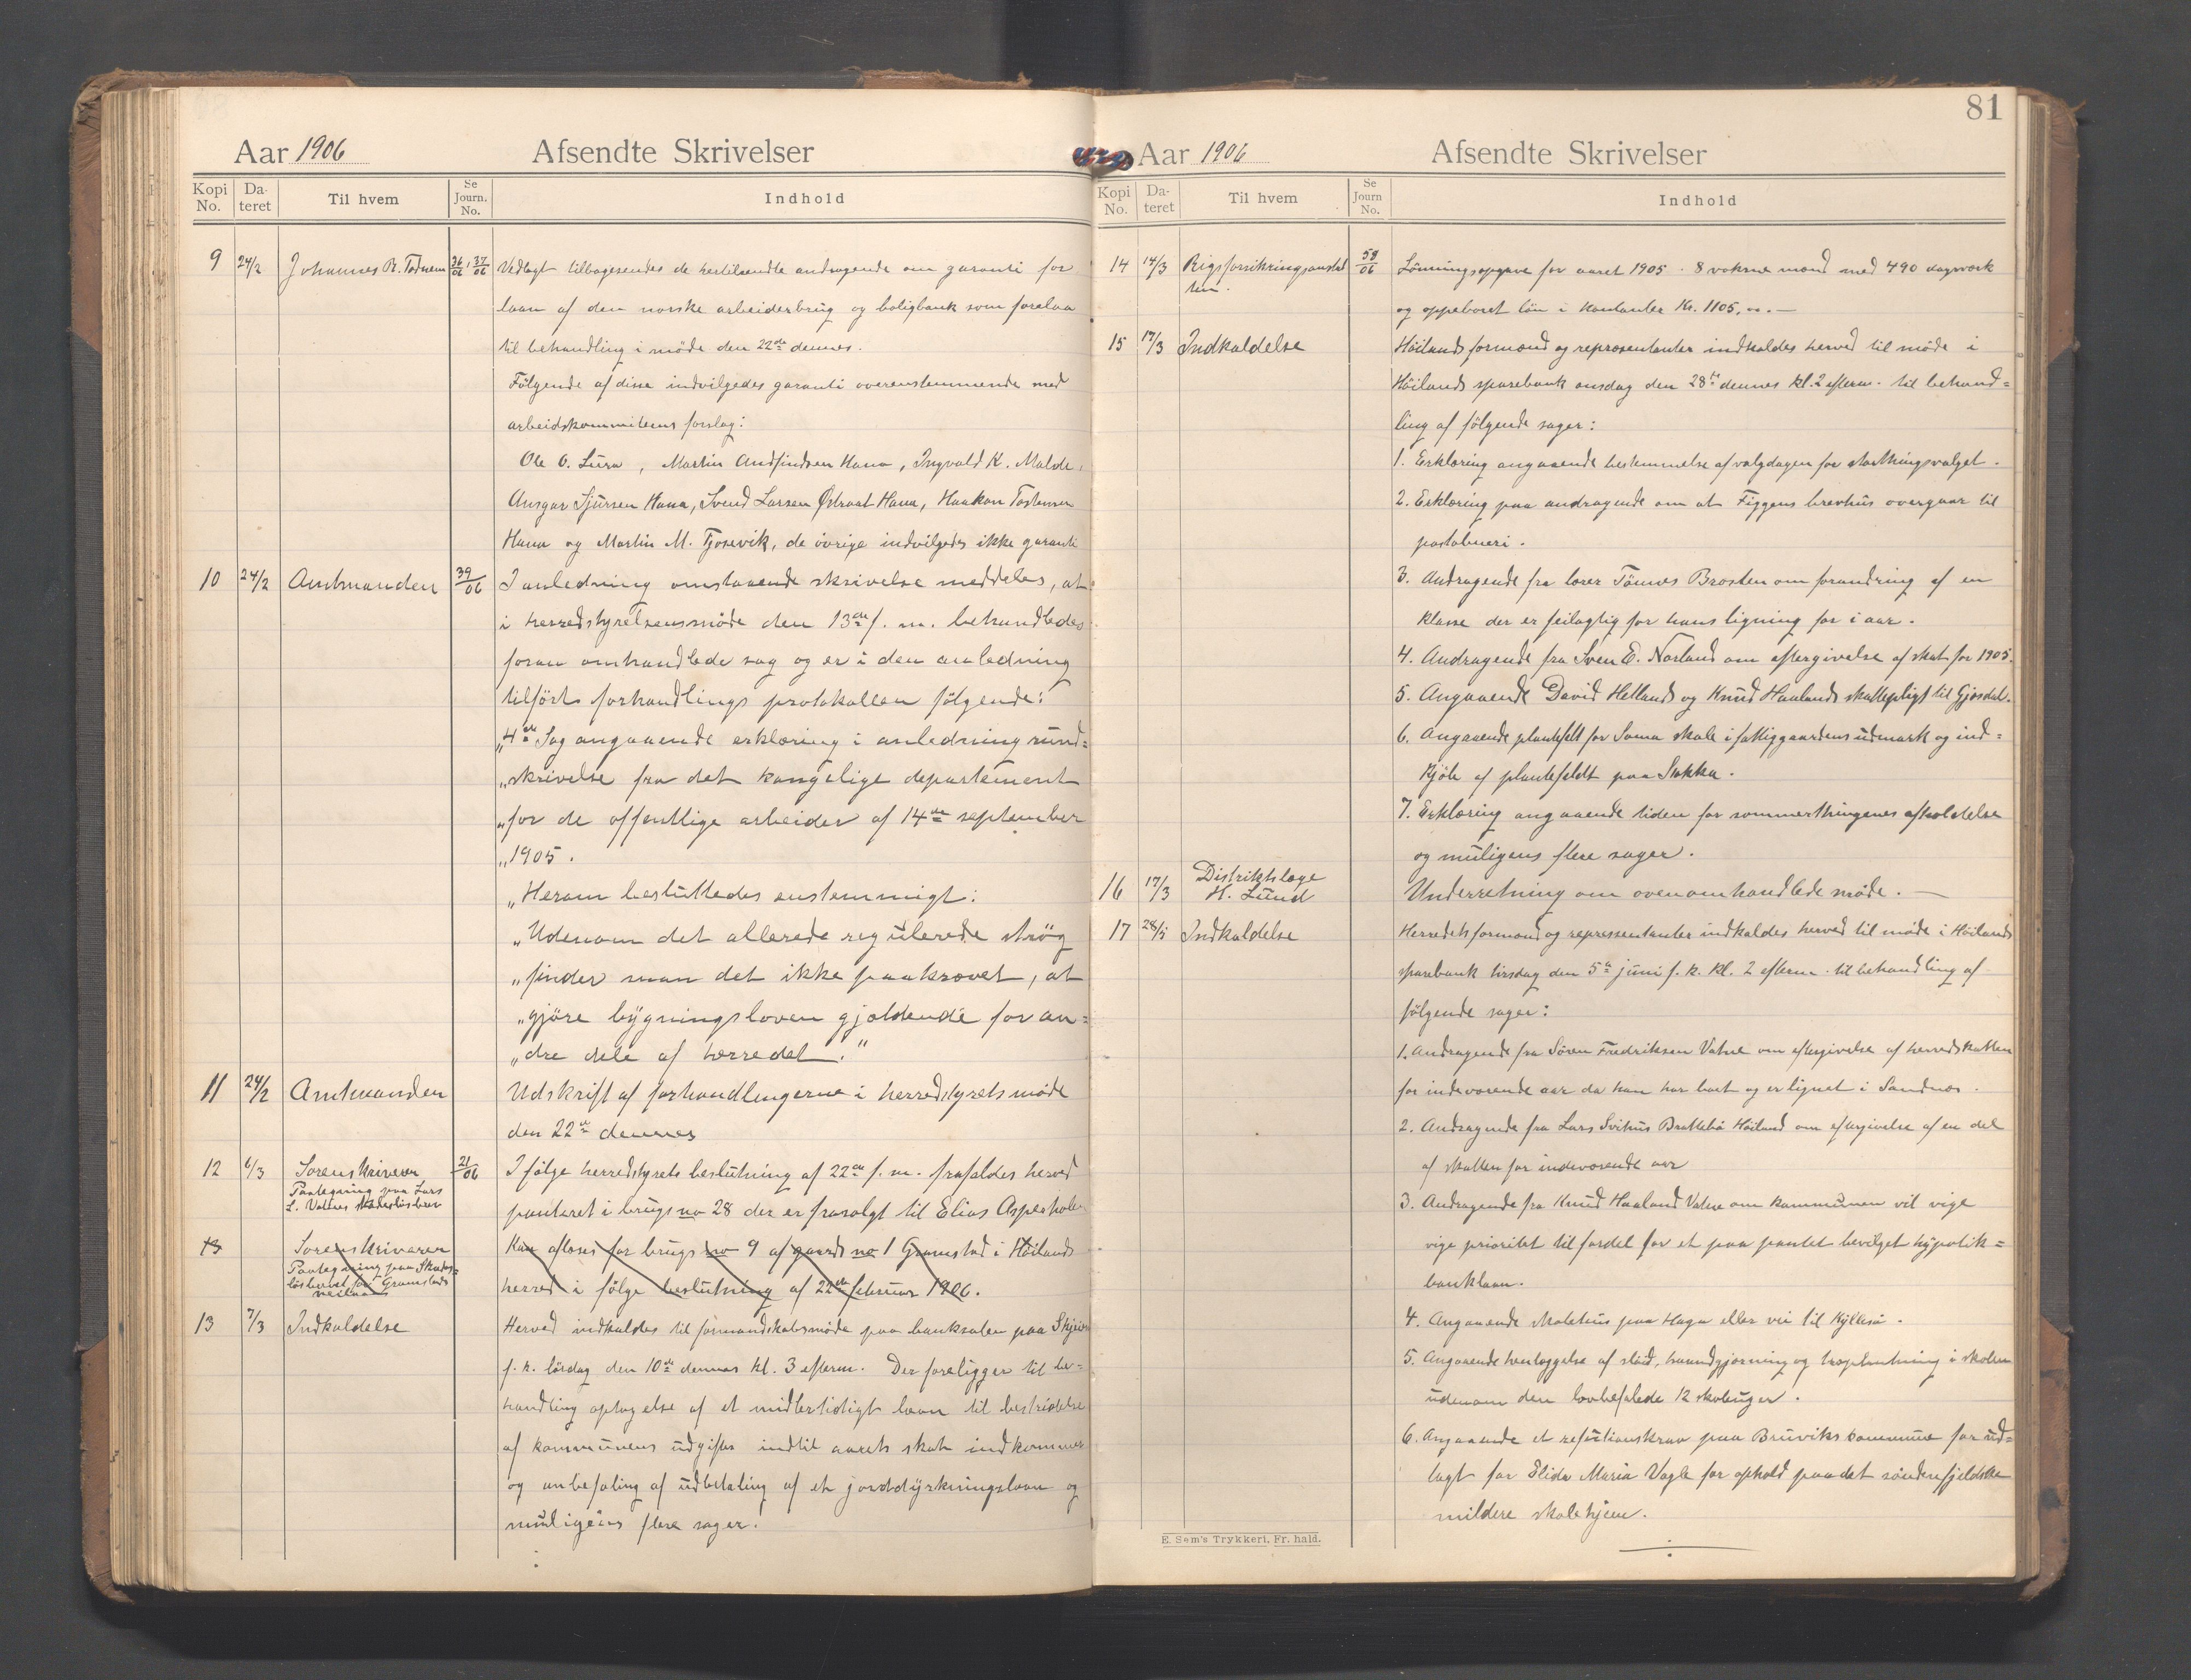 Aar 1906 Afsendte Skrivelser
Kopi No. Dateret Til hvem Se Journ. No. Indhold
9 24/2 Johannes R. Todnem 36/06, 37/06 Vedlagt tilbagesendes de hertilsendte andragende om garanti for
laan af den norske arbeiderbrug og boligbank som forelaa
til behandling i møde den 22de dennes.
Følgende af disse indvilgedes garanti overenstemmende med
arbeidskommiteens forslag:
Ole O. Lura, Martin Andfindsen Hana, Ingvald K. Malde,
Ansgar Sjursen Hana, Svend Larsen Østraat Hana, Haakon Tostensen
Hana og Martin M. Gjosevik, de øvrige indvilgedes ikke garanti
10 24/2 Amtmanden 39/06 I anledning omstaaende skrivelse meddeles, at
i herredstyrelsensmøde den 13de f. m. behandledes
foran omhandlede sag og er i den anledning
tilført forhandlings protokollen følgende:
„4de Sag angaaende erklæring i anledning rund=
„skrivelse fra det kongelige departement
„for de offentlige arbeider af 14de september
„1905.
„Herom besluttedes enstemmigt:
„Udenom det allerede regulerede strøg
„finder man det ikke paakrævet, at
„gjøre bygningsloven gjældende for an=
„dre dele af herredet."
11 24/2 Amtmanden Udskrift af forhandlingerne i herredstyrets møde
den 22de dennes
12 6/3 Sorenskriveren 21/06 I følge herredstyrets beslutning af 22de f. m. frafaldes herved
Paategning paa Lars
L. Vatnes skadesløsbrev
panteret i brugs no 28 der er frasolgt til Elias Aspeholen
13 Sorenskriveren Kan afløses for brugs no 9 af gaards no 1 Gramstad i Høilands
Paategning paa Skades=
løsbrevet fra Gramstads
herred i følge beslutning af 22de februar 1906.
13 7/3 Indkaldelse Herved indkaldes til formandskabsmøde paa banksalen paa Skjæve
f. k. lørdag den 10de dennes kl. 3 efterm. Der foreligger til be=
handling optagelse af et midlertidigt laan til bestridelse
af kommunens udgifter indtil aarets skat indkommer
og anbefaling af udbetaling af et jorddyrkningslaan og
muligens flere sager.
81
Aar 1906 Afsendte Skrivelser
Kopi No. Dateret Til hvem Se Journ No. Indhold
14 14/3 Rigsforsikringsanstal
ten. 58/06 Lønningsopgave for aaret 1905. 8 voksne mænd med 490 dagsværk
og oppebaaret løn i kontanter Kr. 1105,00.—
15 17/3 Indkaldelse Høilands formænd og repræsentanter indkaldes herved til møde i
Høilands sparebank onsdag den 28de dennes kl. 2 efterm. til behand=
ling af følgende sager:
1. Erklæring angaaende bestemmelse af valgdagen for storthingsvalget.
2. Erklæring paa andragende om at Figgens brevhus overgaar til
postabneri.
3. Andragende fra lærer Tønnes Brosten om forandring af en
klasse der er feilagtig for hans ligning for i aar.
4. Andragende fra Sven E. Norland om eftergivelse af skat for 1905.
5. Angaaende David Hetlands og Knud Haalands skattepligt til Gjesdal.
6. Angaaende plantefelt for Soma skole i fattiggaardens udmark og ind=
kjøb af plantefeldt paa Stokka.
7. Erklæring angaaende tiden for sommerthingenes afholdelse
og muligens flere sager.
16 17/3 Distriktslæge
H. Lund Underretning om ovenomhandlede møde.—
17 28/5 Indkaldelse Herredets formænd og repressentanter indkaldes herved til møde i Høilands
sparebank tirsdag den 5te juni f. k. kl. 2 efterm. til behandling af
følgende sager:
1. Andragende fra Søren Fredriksen Vatne om eftergivelse af herredskatten
for indeværende aar da han har boet og er lignet i Sandnæs.
2. Andragende fra Lars Svihus Brattebø Høiland om eftergivelse af en del
af skatten for indeværende aar
3. Andragende fra Knud Haaland Vatne om kommunen vil vige
vige prioritet til fordel for et paa pantet bevilget hypotik=
banklaan.
4. Angaaende skolehus paa Haga eller vei til Kyllesø.
5. Angaaende henlæggelse af sløid, haandgjerning og træplantning i skolen
udenom den lovbefalede 12 skoleuger.
6. Angaaende et refutionskrav paa Bruviks kommune for ud=
lagt for Elida Maria Vagle for ophold paa det søndenfjeldske
mildere skolehjem.
E. Sem's Trykkeri, Fr. hald.